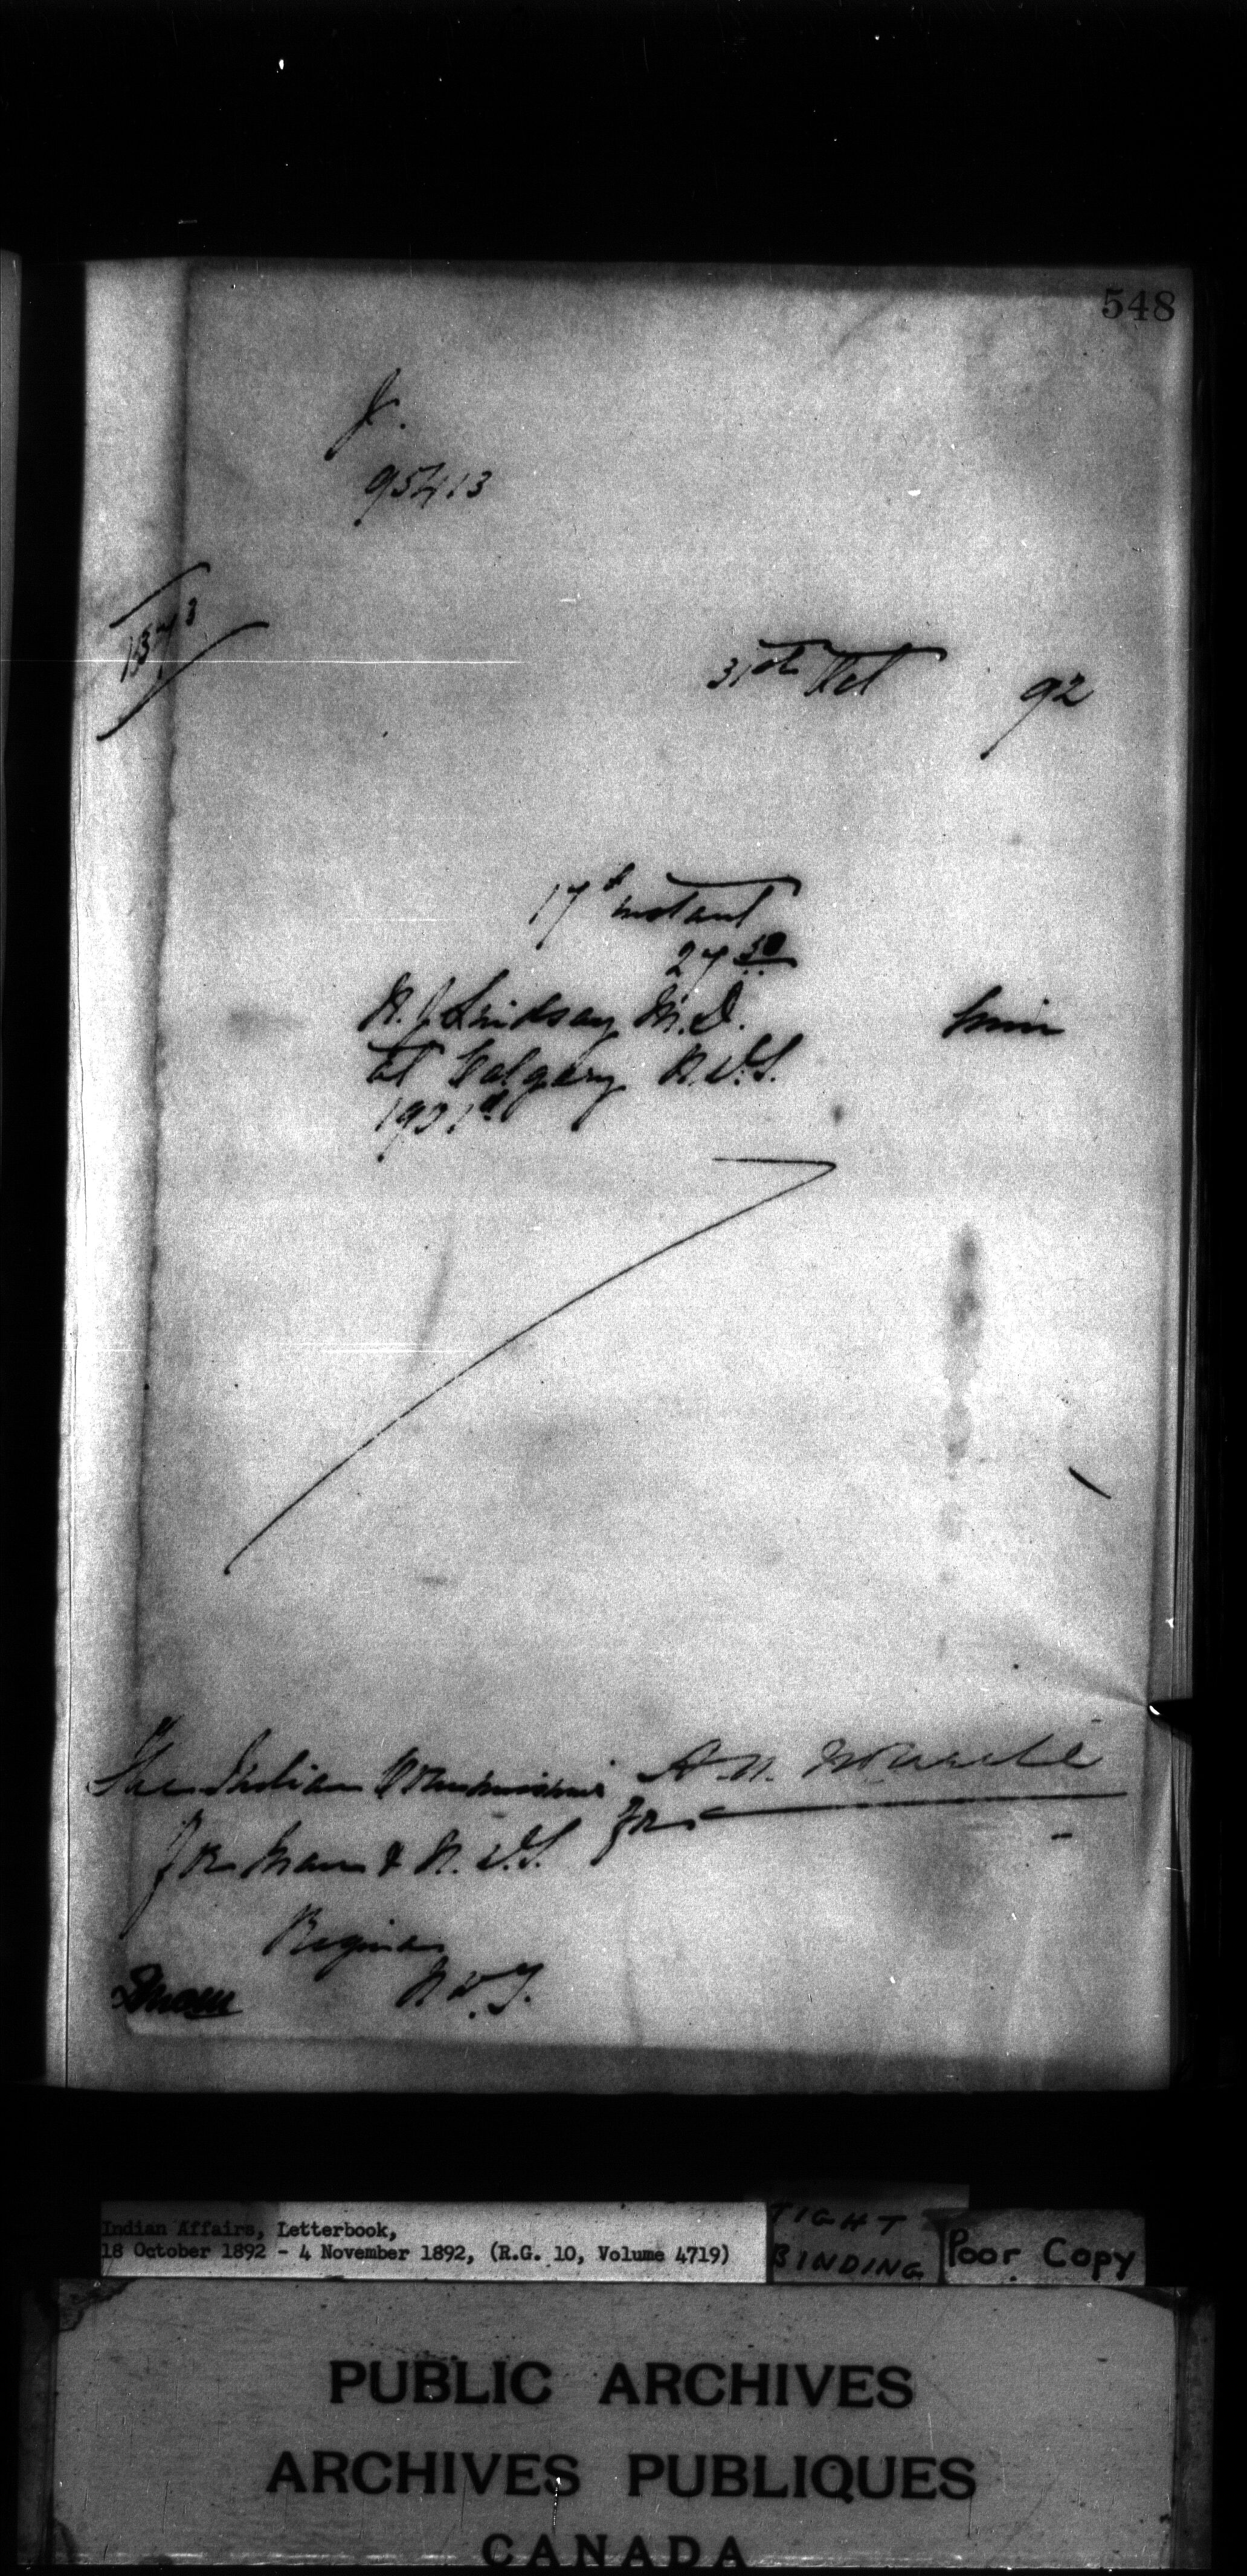 548
J.
95413
1373
31st Oct 92
17th instant
27 50
N. J. Lindsay M.D. him
at Calgary N.W.T.
The Indian Commissioner
for
for Man & N.W.T.
Regina
N.W.T.
Indian Affairs, Letterbook,
18 October 1892 - 4 November 1892, (R.G. 10, Volume 4719)
TIGHT
BINDING
Poor Copy
PUBLIC ARCHIVES
ARCHIVES PUBLIQUES
CANADA